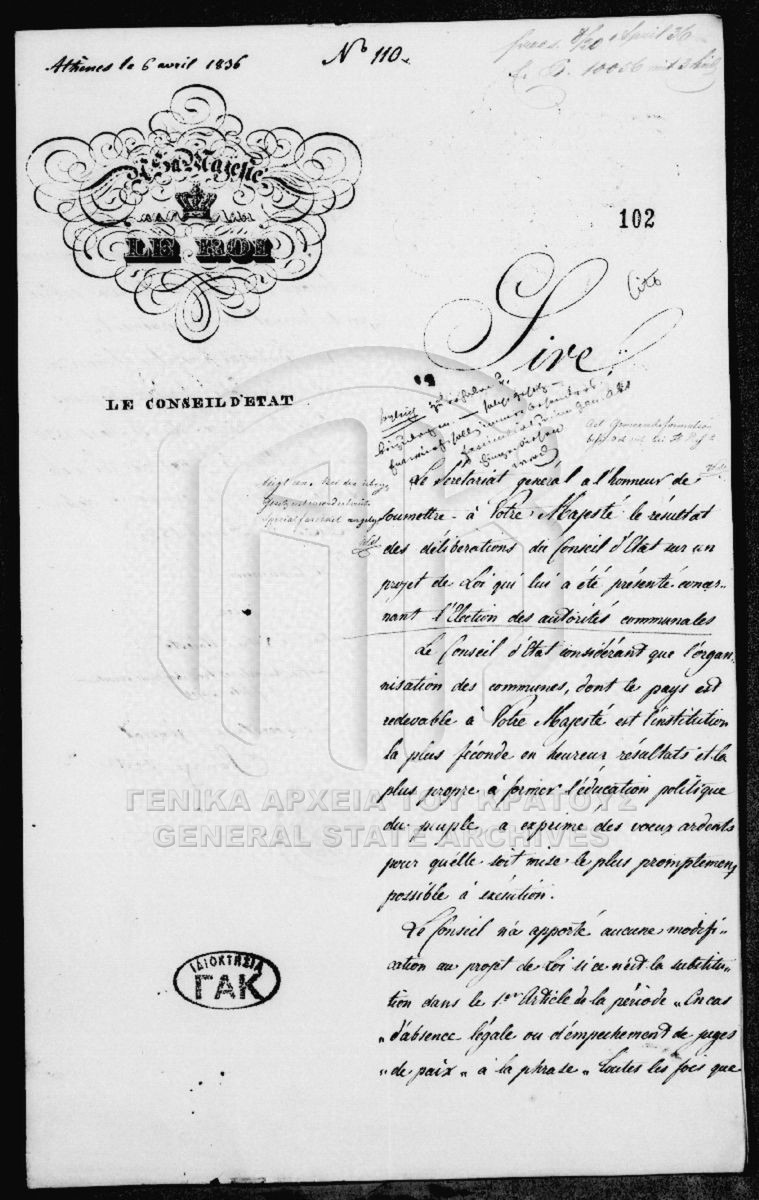 Athènes le 6 avril 1836
No 110.
praes. 8/20 April 36
10056
A Sa Majesté
LE ROI
102
Cito
Sire
LE CONSEIL D'ETAT
Le Secretariat général a l'honneur de
soumettre à Votre Majesté le résultat
des déliberations du Conseil d'Etat sur un
projet de Loi qui lui a été présenté concer-
nant l'Election des autorités communales
Le Conseil d'Etat considérant que l'organ-
nisation des communes, dont le pays est
redevable à Votre Majesté est l'institution
la plus féconde en heureux résultats et la
plus propre à former l'éducation politique
du peuple, a exprimé des voeux ardents
pour qu'elle soit mise le plus promptement
possible à exécution.
Le Conseil n'a apporté aucune modifi-
cation au projet de Loi si ce n'est la substitu-
tion dans le 1er Article de la période „En cas
„d'absence légale ou d'empechement de juges
„de paix„ à la phrase „toutes les fois que
ΓΕΝΙΚΑ ΑΡΧΕΙΑ ΤΟΥ ΚΡΑΤΟΥΣ
GENERAL STATE ARCHIVES
ΙΔΙΟΚΤΗΣΙΑ
ΓΑΚ